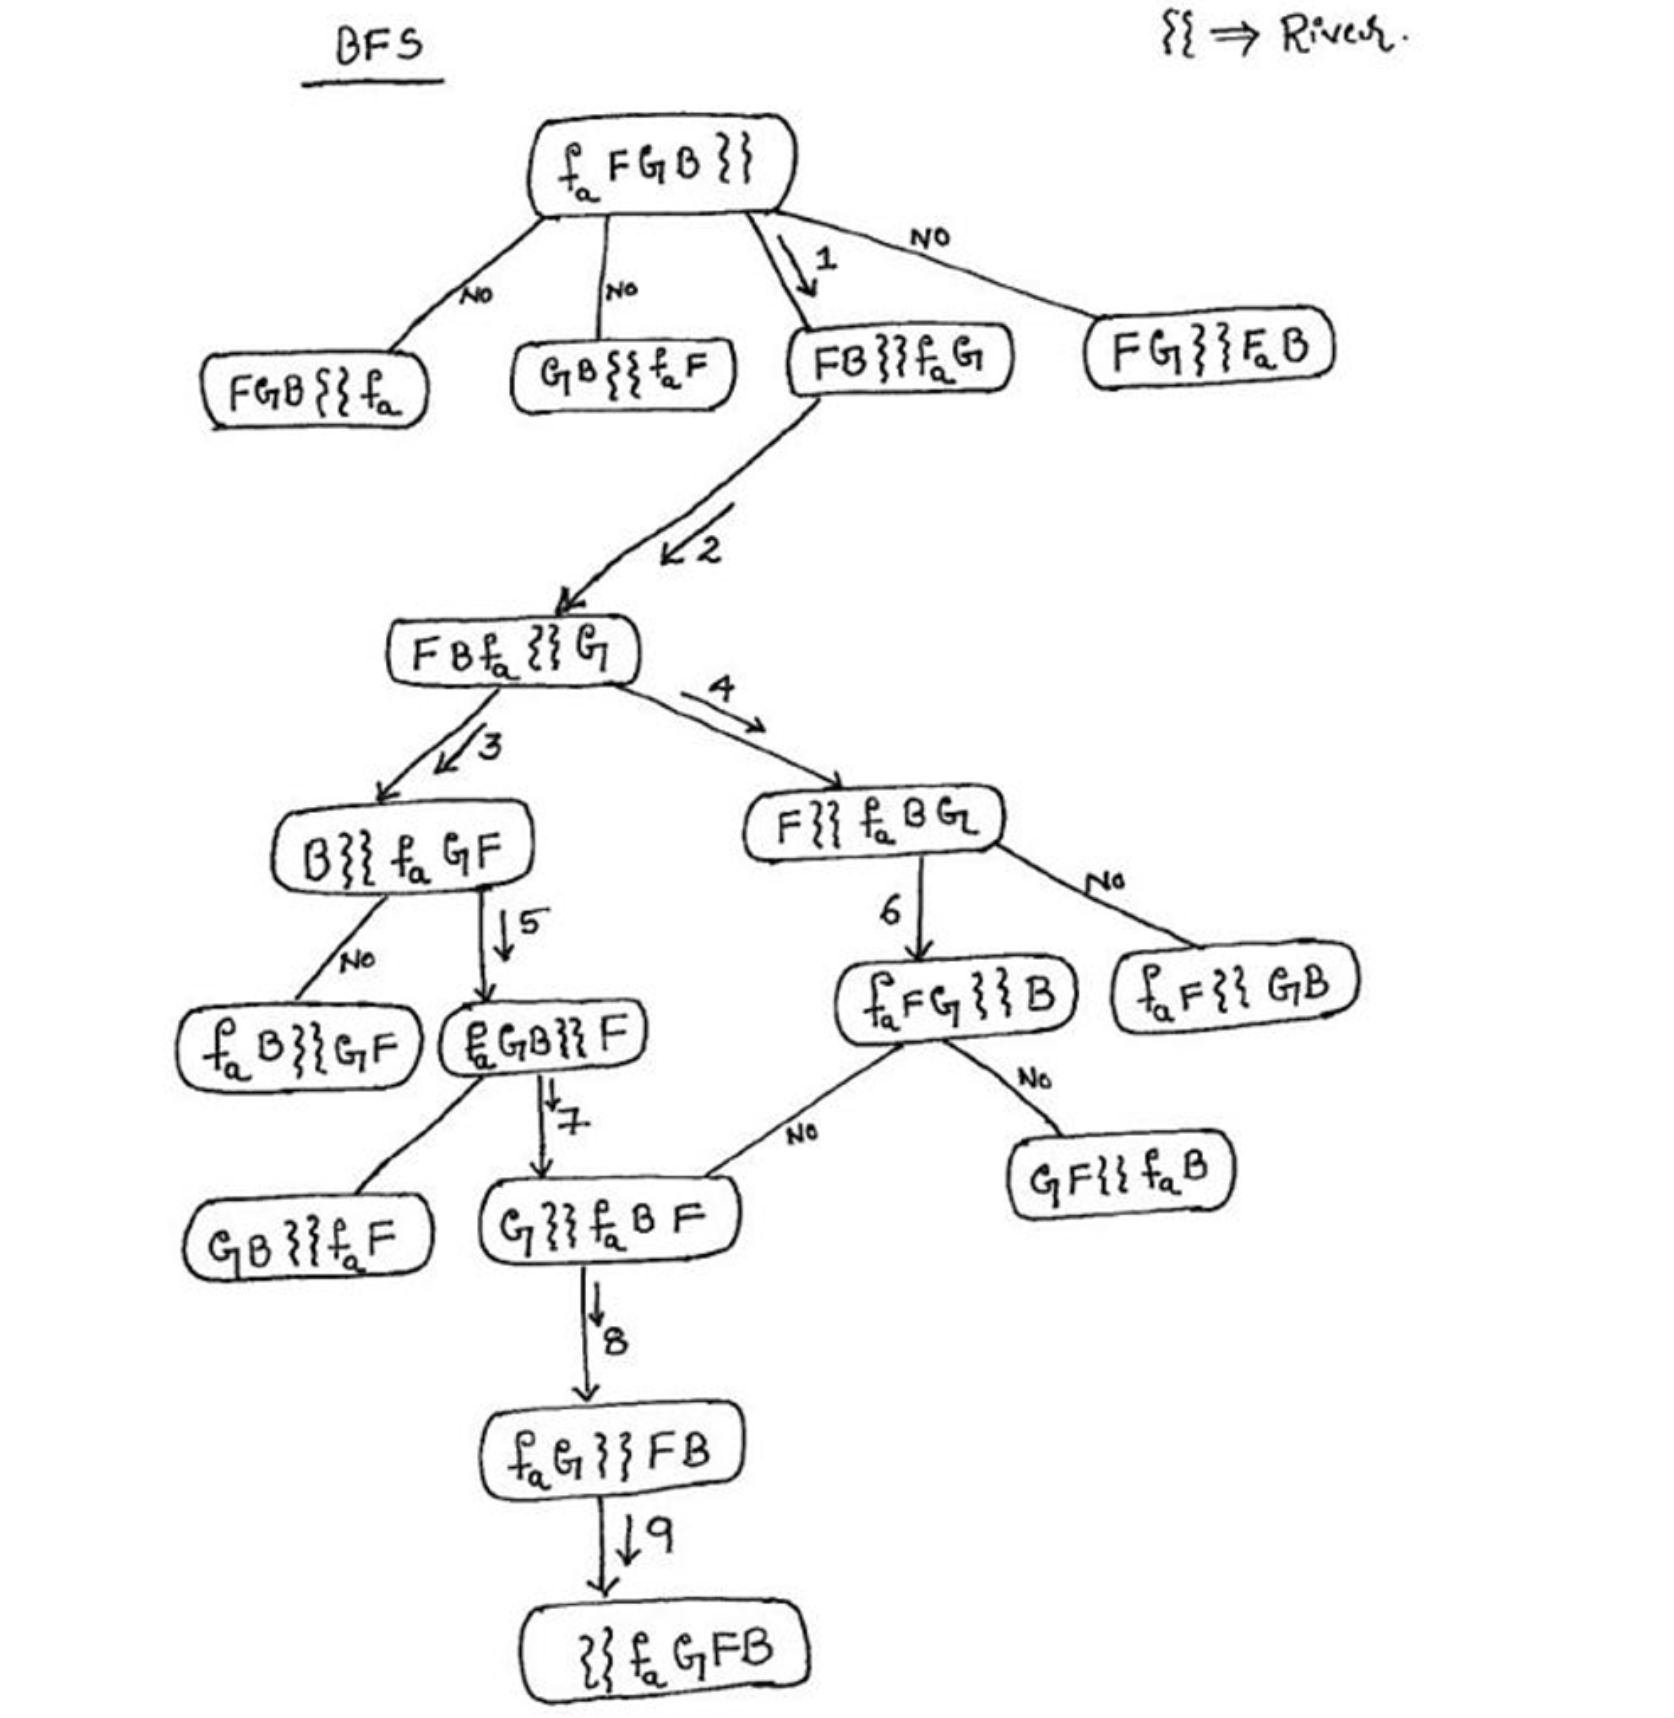 BFS
{{ ⇒ River.
fa FGB }}
NO
NO
1
NO
FGB {{ fa
GB {{ fa F
FB }} fa G
FG }} Fa B
2
FB fa }} G
3
4
B }} fa GF
F }} fa BG
NO
5
6
NO
fa B }} GF
fa GB }} F
fa FG }} B
fa F {{ GB
7
NO
NO
GB }} fa F
G }} fa B F
GF }} fa B
8
fa G }} FB
9
}} fa GFB